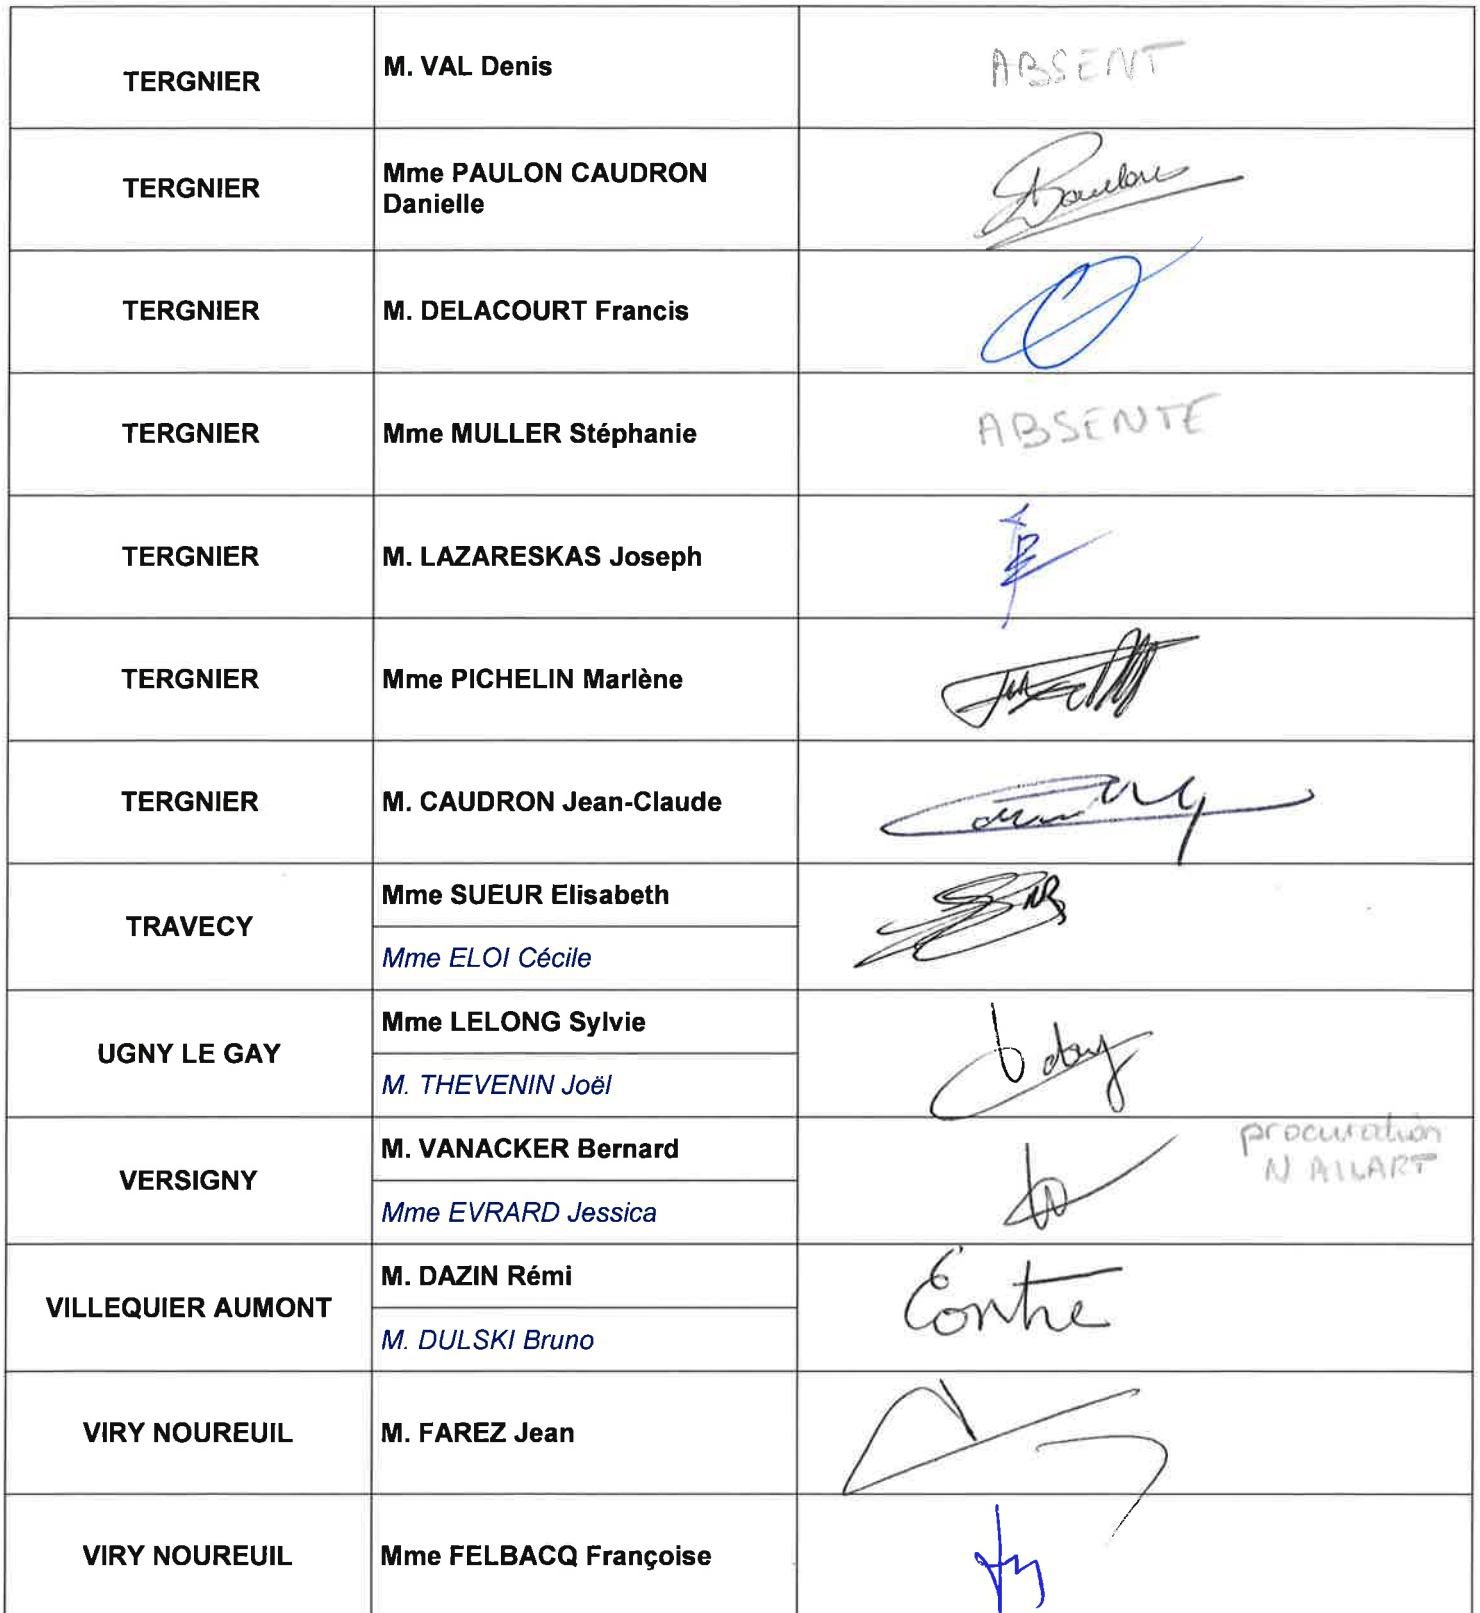 TERGNIER
M. VAL Denis
ABSENT
TERGNIER
Mme PAULON CAUDRON
Danielle
Paulon
TERGNIER
M. DELACOURT Francis
TERGNIER
Mme MULLER Stéphanie
ABSENTE
TERGNIER
M. LAZARESKAS Joseph
TERGNIER
Mme PICHELIN Marlène
TERGNIER
M. CAUDRON Jean-Claude
TRAVECY
Mme SUEUR Elisabeth
Mme ELOI Cécile
UGNY LE GAY
Mme LELONG Sylvie
M. THEVENIN Joël
VERSIGNY
M. VANACKER Bernard
Mme EVRARD Jessica
procuration
N AILLART
VILLEQUIER AUMONT
M. DAZIN Rémi
M. DULSKI Bruno
Contre
VIRY NOUREUIL
M. FAREZ Jean
VIRY NOUREUIL
Mme FELBACQ Françoise